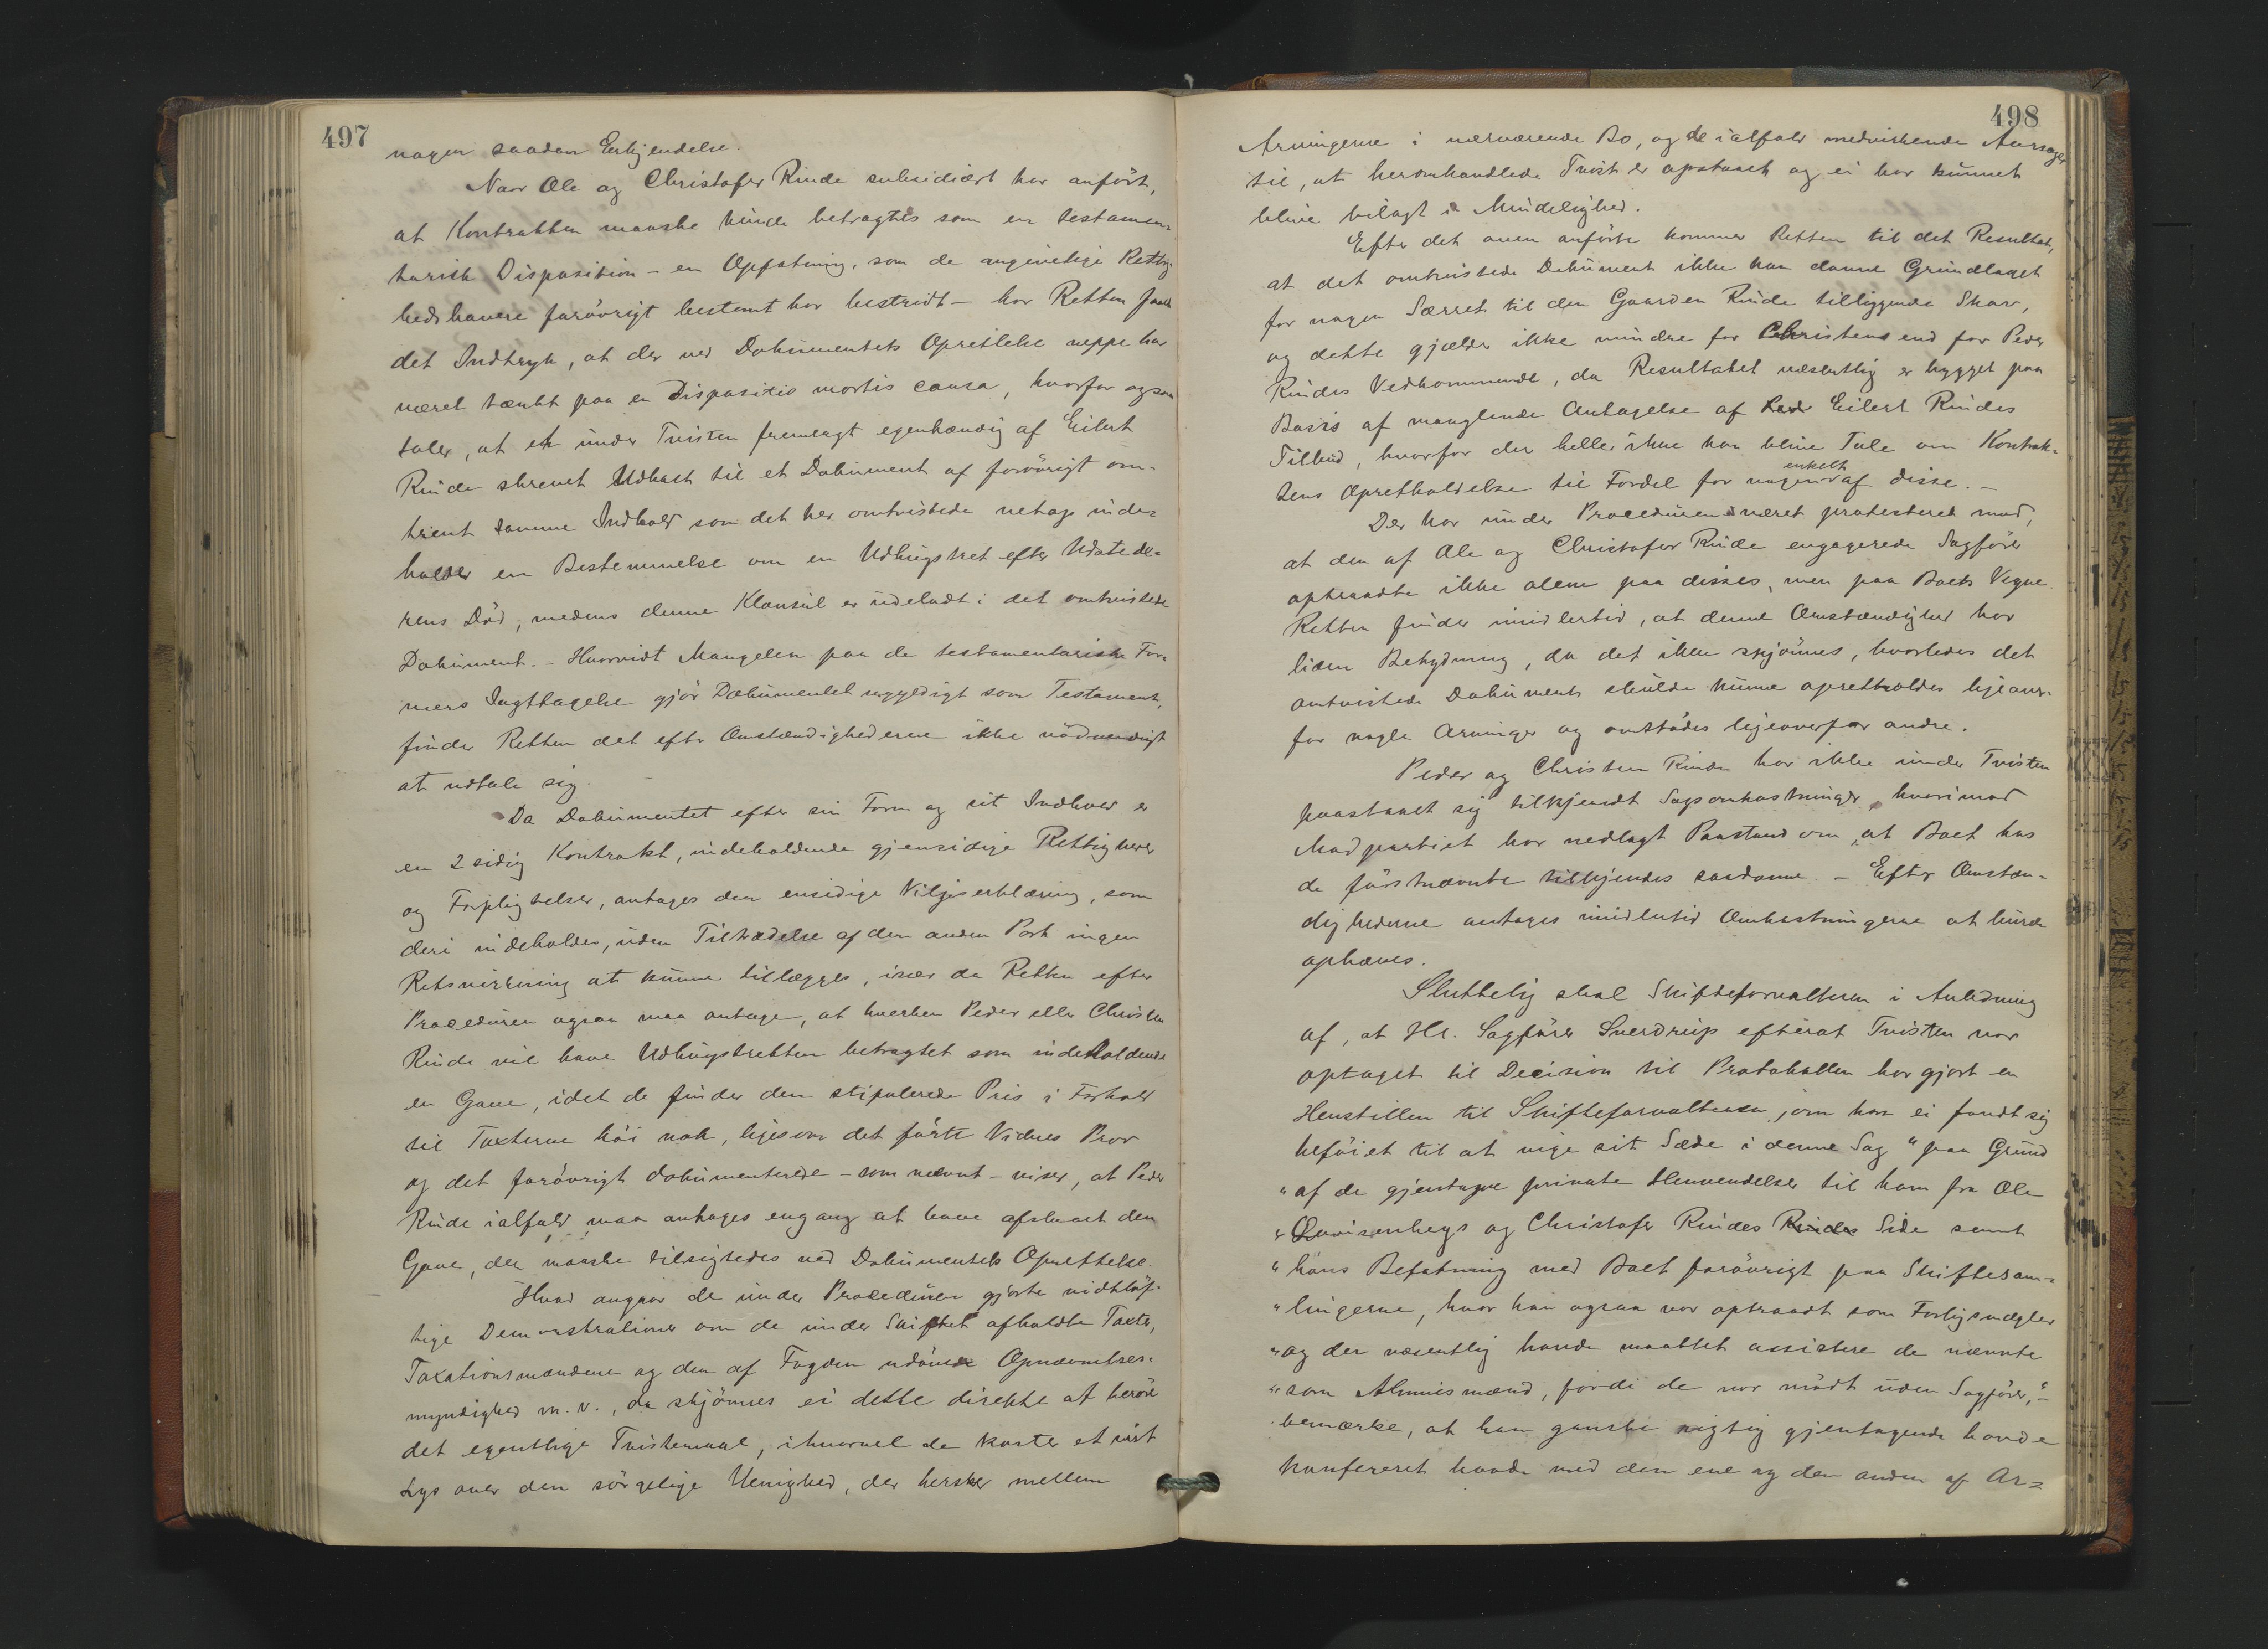 497
nogen saadan Erkjendelse.
Naar Ole og Christofer Rinde subsidiært har anført,
at Kontrakten maaske kunde betragtes som en testamen-
tarisk Disposition – en Opfatning, som de angivelige Rettig-
hedshavere forøvrigt bestemt har bestridt – har Retten faaet
det Indtryk, at der ved Dokumentets Oprettelse neppe har
været tænkt paa en Dispositio mortis causa, hvorfor ogsaa
taler, at et under Tvisten fremlagt egenhændig af Eilert
Rinde skrevet Udkast til et Dokument af forøvrigt om-
trent samme Indhold som det her omtvistede netop inde-
holder en Bestemmelse om en Udhugstret efter Udstede-
rens Død, medens denne Klausul er udeladt i det omtvistede
Dokument. – Hvorvidt Mangelen paa de testamentariske For-
mers Iagttagelse gjør Dokumentet ugyldigt som Testament,
finder Retten det efter Omstændighederne ikke nødvendigt
at udtale sig.
Da Dokumentet efter sin Form og sit Indhold er
en 2 sidig Kontrakt, indeholdende gjensidige Rettigheder
og Forpligtelser, antages den ensidige Viljeserklæring, som
deri indeholdes, uden Tiltrædelse af den anden Part ingen
Retsvirkning at kunne tillægges, især da Retten efter
Proceduren ogsaa maa antage, at hverken Peder eller Christen
Rinde vil have Udhugstretten betragtet som indeholdende
en Gave, idet de finder den stipulerede Pris i Forhold
til Taxterne høi nok, ligesom det førte Vidnes Prov
og det forøvrigt dokumenterede – som nævnt – viser, at Peder
Rinde ialfald maa antages engang at have afslaaet den
Gave, der maaske tilsigtedes ved Dokumentets Oprettelse.
Hvad angaar de under Proceduren gjorte vidtløf-
tige Demonstrationer om de under Skiftet afholdte Taxter,
Taxationsmændene og den af Fogden udøvede Opnævnelses-
myndighed m. v., da skjønnes ei dette direkte at berøre
det egentlige Tvistemaal, ihvorvel de kaster et vist
Lys over den sørgelige Uenighed, der hersker mellem
498
Arvingerne i nærværende Bo, og de ialfald medvirkende Aarsager
til, at heromhandlede Tvist er opstaaet og ei har kunnet
blive bilagt i Mindelighed.
Efter det oven anførte kommer Retten til det Resultat,
at det omtvistede Dokument ikke kan danne Grundlaget
for nogen Særret til den Gaarden Rinde tilliggende Skov,
og dette gjælder ikke mindre for Christens end for Peder
Rindes Vedkommende, da Resultatet væsentlig er bygget paa
Basis af manglende Antagelse af Eilert Rindes
Tilbud, hvorfor der heller ikke kan blive Tale om Kontrak-
tens Opretholdelse til Fordel for nogen enkelt af disse. –
Der har under Proceduren været protesteret mod,
at den af Ole og Christofer Rinde engagerede Sagfører
optraadte ikke alene paa disses, men paa Boets Vegne.
Retten finder imidlertid, at denne Omstændighed har
liden Betydning, da det ikke skjønnes, hvorledes det
omtvistede Dokument skulde kunne opretholdes ligeover-
for nogle Arvinger og omstødes ligeoverfor andre.
Peder og Christen Rinde har ikke under Tvisten
paastaaet sig tilkjendt Sagsomkostninger, hvorimod
Modpartiet har nedlagt Paastand om, at Boet hos
de førstnævnte tilkjendes saadanne. – Efter Omstæn-
dighederne antages imidlertid Omkostningerne at burde
ophæves.
Sluttelig skal Skifteforvalteren i Anledning
af, at Hr. Sagfører Sverdrup efterat Tvisten var
optaget til Decision til Protokollen har gjort en
Henstillen til Skifteforvalteren, om han ei fandt sig
beføiet til at vige sit Sæde i denne Sag "paa Grund
"af de gjentagne private Henvendelser til ham fra Ole
"Lovisenbergs og Christofer Rindes Side samt
"hans Befatning med Boet forøvrigt paa Skiftesam-
"lingerne, hvor han ogsaa var optraadt som Forligsmægler
"og der væsentlig havde maattet assistere de nævnte
"som Almuesmænd, fordi de var mødt uden Sagfører," –
bemærke, at han ganske rigtig gjentagende havde
konfereret baade med den ene og den anden af Ar-